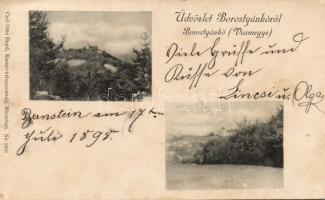 Üdvözlet Borostyánkőről
Borostyánkő (Vasmegye)
Viele Grüsse und
Küsse von
Lincsi u. Olga
Bernstein am 17ten
Juli 1898.
Carl Otto Hayd, Kunstverlagsanstalt, München. No.